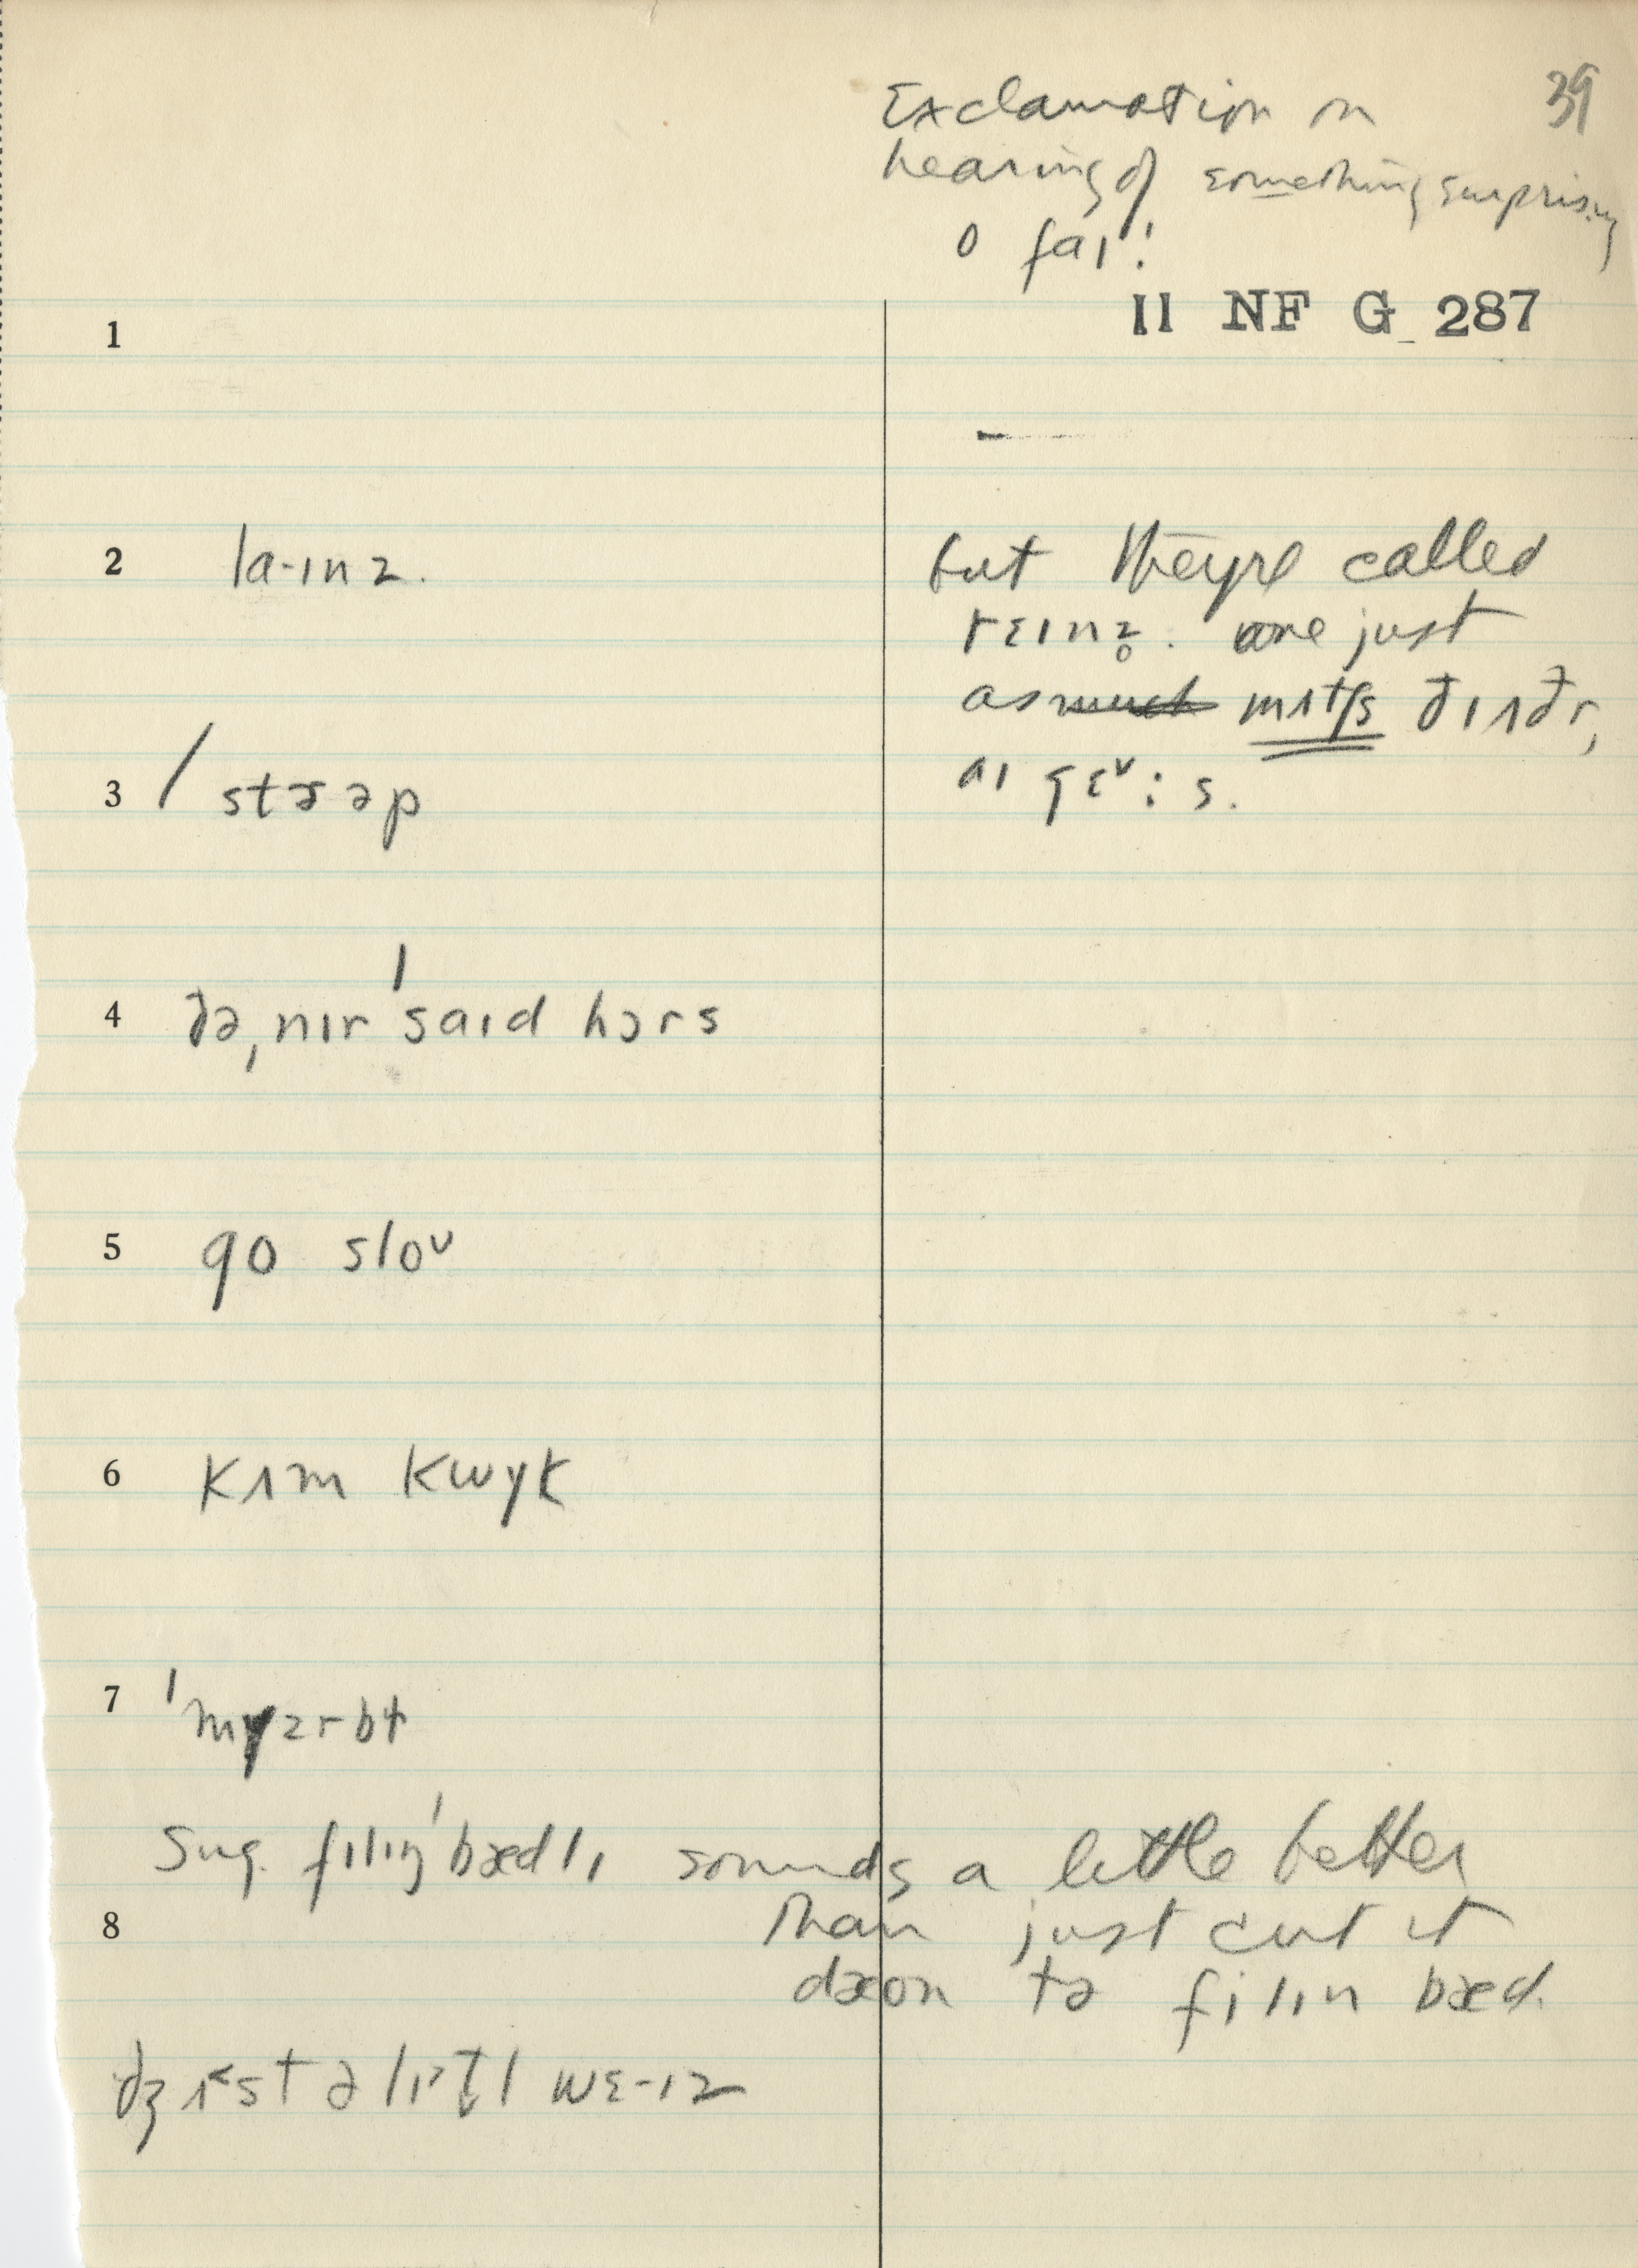 39
Exclamation on
hearing of something surprising
o faɪ!
II NF G 287
1
2 la·ɪnz. but they're called
rɛɪnz̥. one just
as much mʌtʃs ðɪ ʌðr,
3 / stræəp aɪ gɛᵛ:s.
4 ðə ˌnɪr ˈsaɪd hɔrs
5 go sloᴜ
6 kʌm kwyk
7 ˈmyzrbɫ
Sug. filɪŋ ˈbædlɪ sounds a little better
8 than just cut it
dæon tə filɪn bæd.
dʒʌ˂st ə lɪ˃t̬l wɛ·ɪz